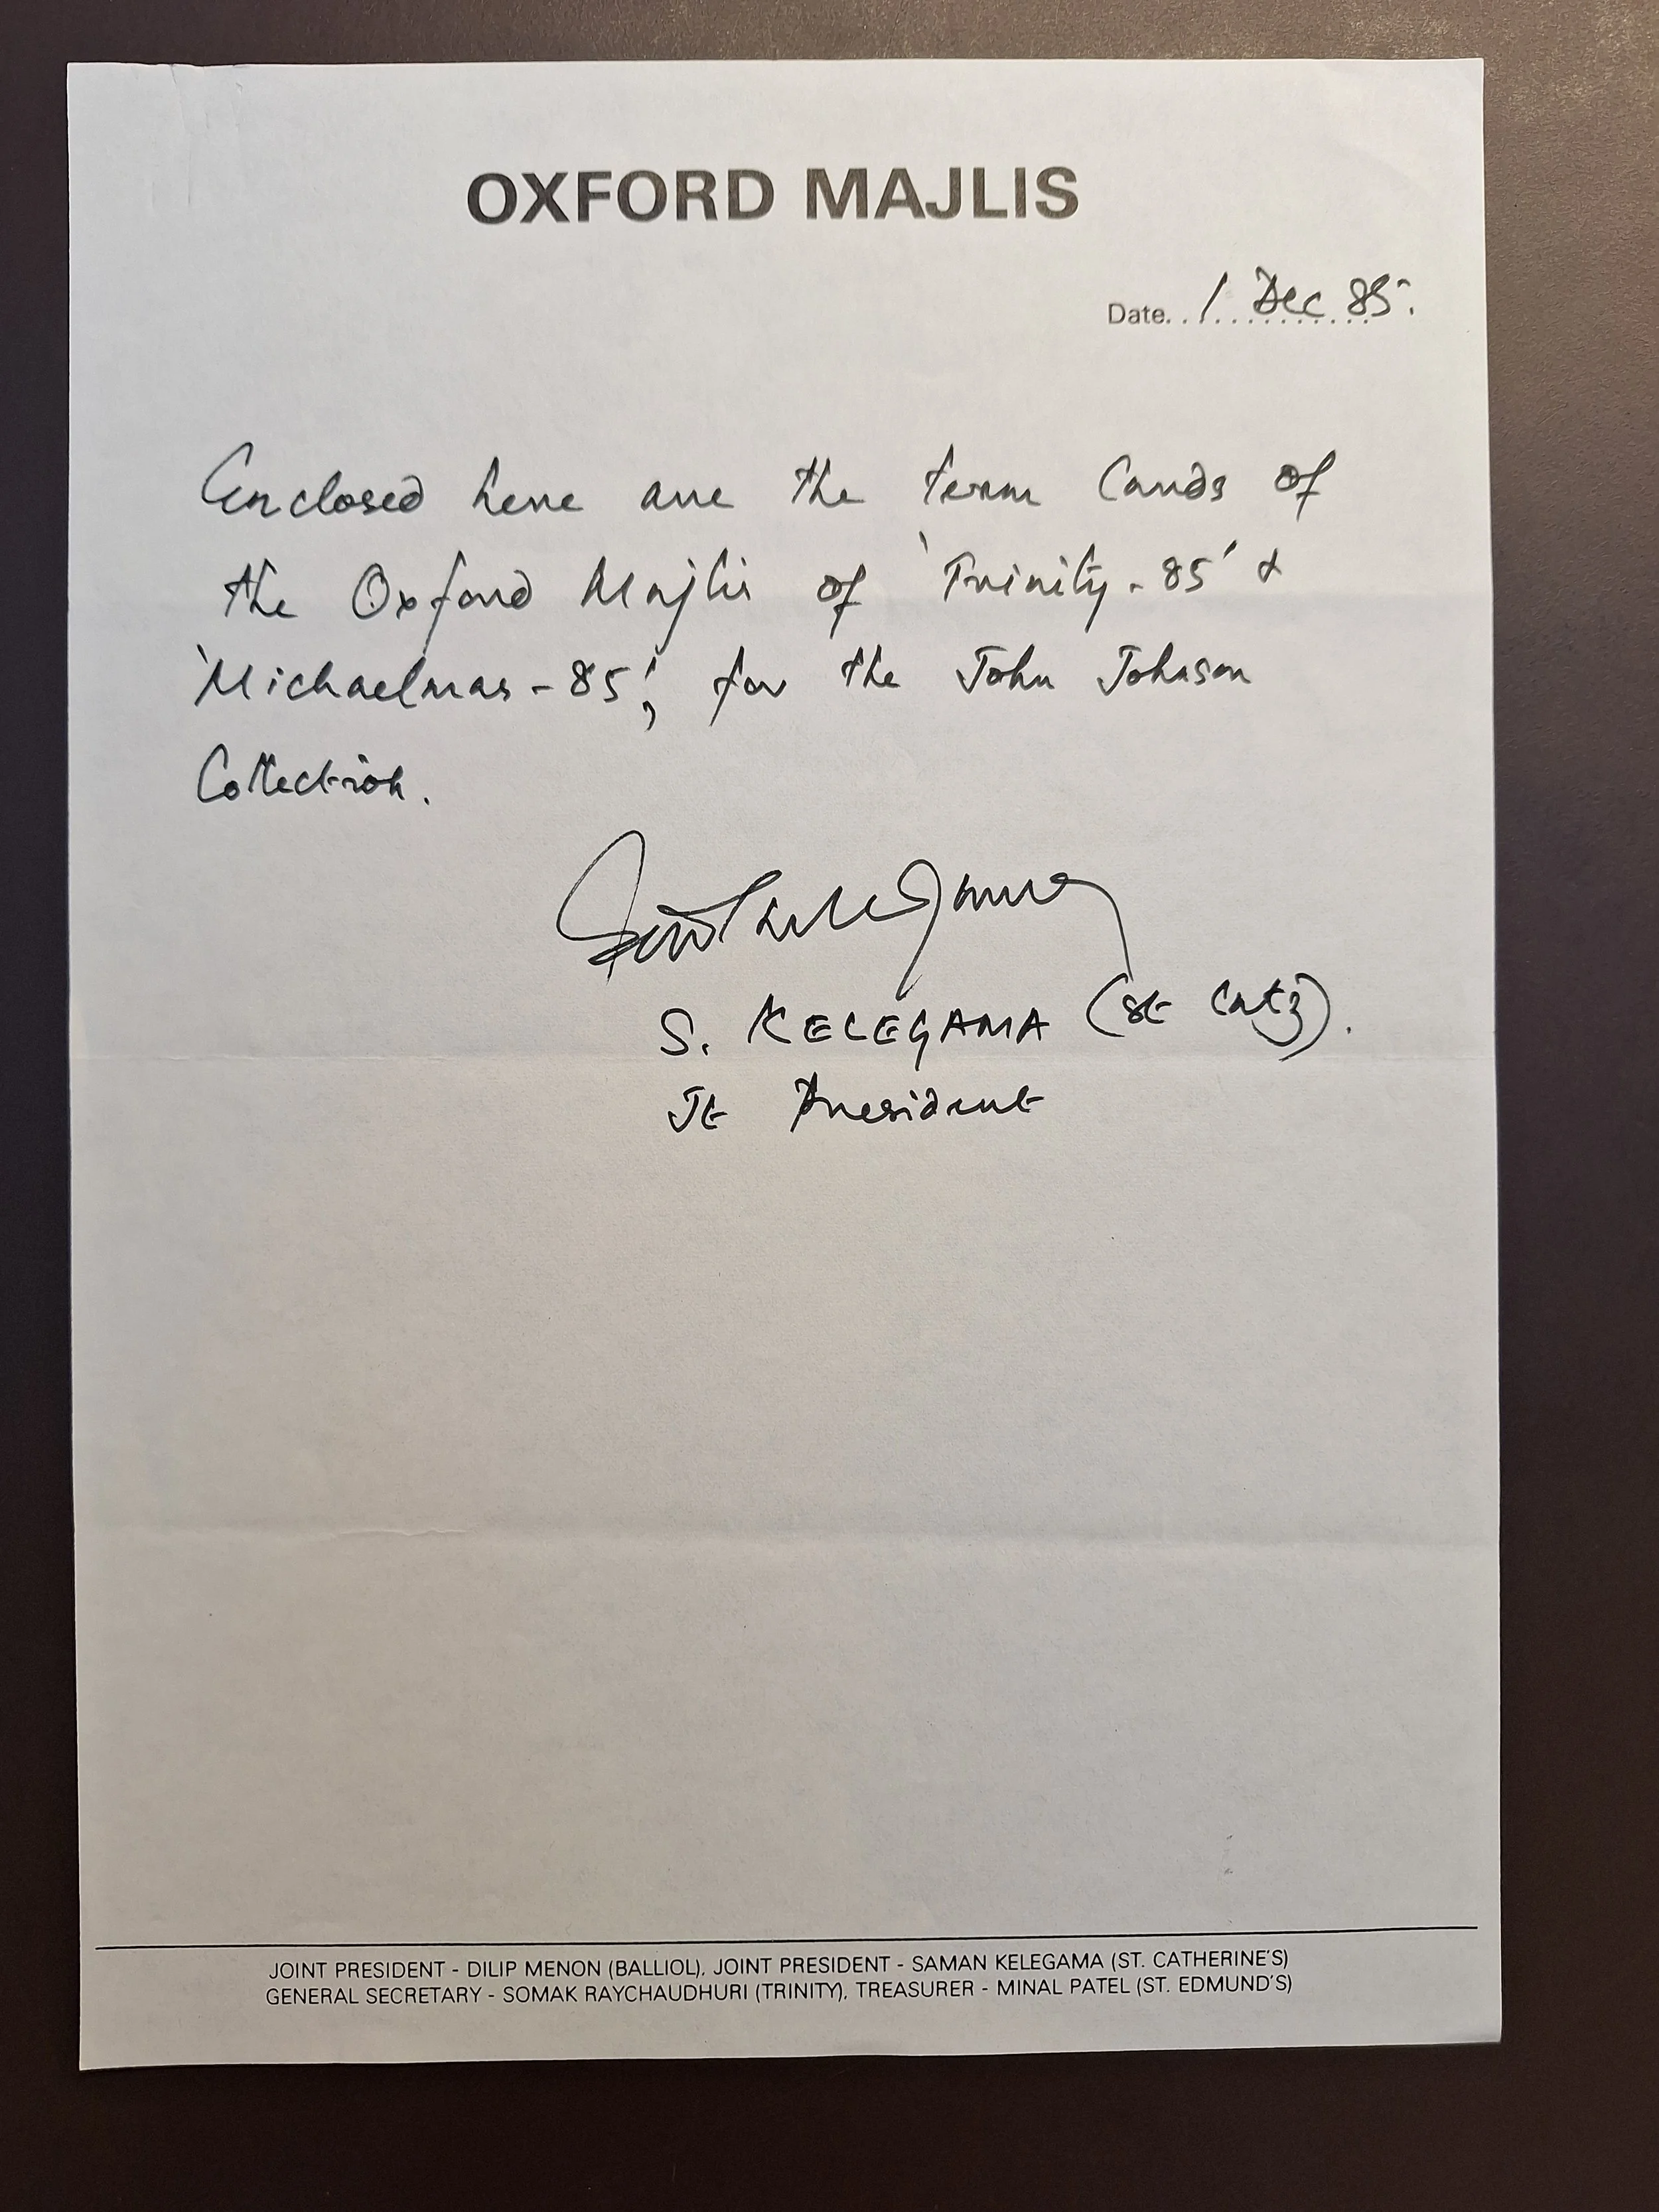 OXFORD MAJLIS
Date. . 1 Dec 85.
Enclosed here are the term cards of
the Oxford Majlis of 'Trinity-85' &
'Michaelmas-85', for the John Johnson
Collection.
S. KELEGAMA (St Catz).
Jt President
JOINT PRESIDENT - DILIP MENON (BALLIOL), JOINT PRESIDENT - SAMAN KELEGAMA (ST. CATHERINE'S)
GENERAL SECRETARY - SOMAK RAYCHAUDHURI (TRINITY), TREASURER - MINAL PATEL (ST. EDMUND'S)